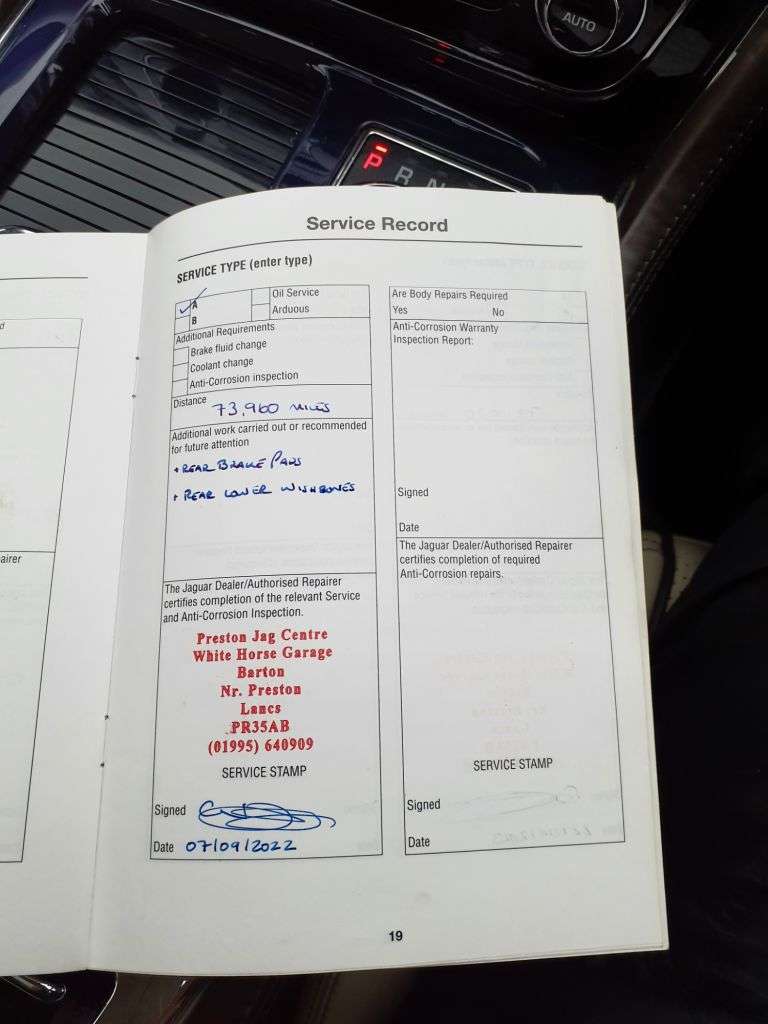 AUTO
P R N
Service Record
SERVICE TYPE (enter type)
A
B
Oil Service
Arduous
Additional Requirements
Brake fluid change
Coolant change
Anti-Corrosion inspection
Distance 73,960 MILES
Additional work carried out or recommended
for future attention
REAR BRAKE PADS
REAR LOWER WISHBONES
The Jaguar Dealer/Authorised Repairer
certifies completion of the relevant Service
and Anti-Corrosion Inspection.
Preston Jag Centre
White Horse Garage
Barton
Nr. Preston
Lancs
PR35AB
(01995) 640909
SERVICE STAMP
Signed
Date 07/09/2022
Are Body Repairs Required
Yes No
Anti-Corrosion Warranty
Inspection Report:
Signed
Date
The Jaguar Dealer/Authorised Repairer
certifies completion of required
Anti-Corrosion repairs.
SERVICE STAMP
Signed
Date
19